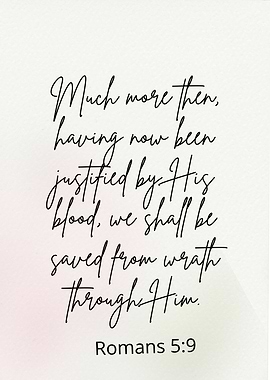 Much more then,
having now been
justified by His
blood, we shall be
saved from wrath
through Him.
Romans 5:9